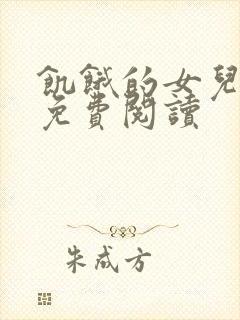 飢餓的女兒
免費閱讀
朱成方